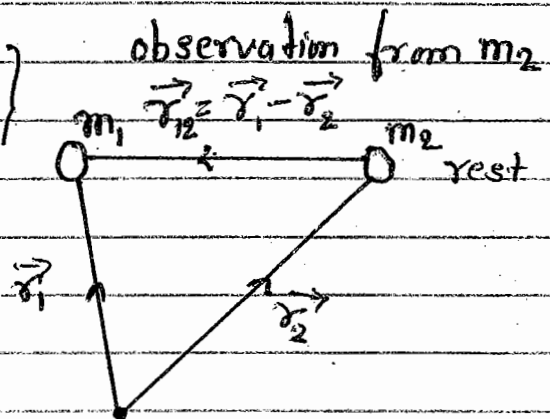 observation from m₂
r⃗₁₂ = r⃗₁ - r⃗₂
m₁ m₂
rest
r⃗₁
r⃗₂